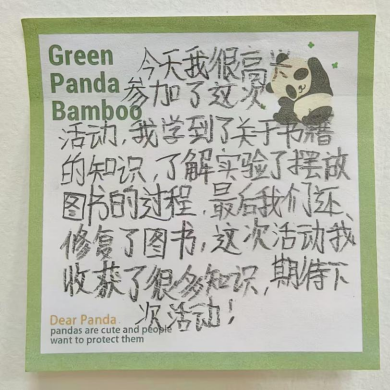 Green
Panda
Bamboo
今天我很高兴
参加了这次
活动，我学到了关于书籍
的知识，了解实验了摆放
图书的过程，最后我们还
修复了图书，这次活动我
收获了很多知识，期待下
次活动！
Dear Panda
pandas are cute and people
want to protect them